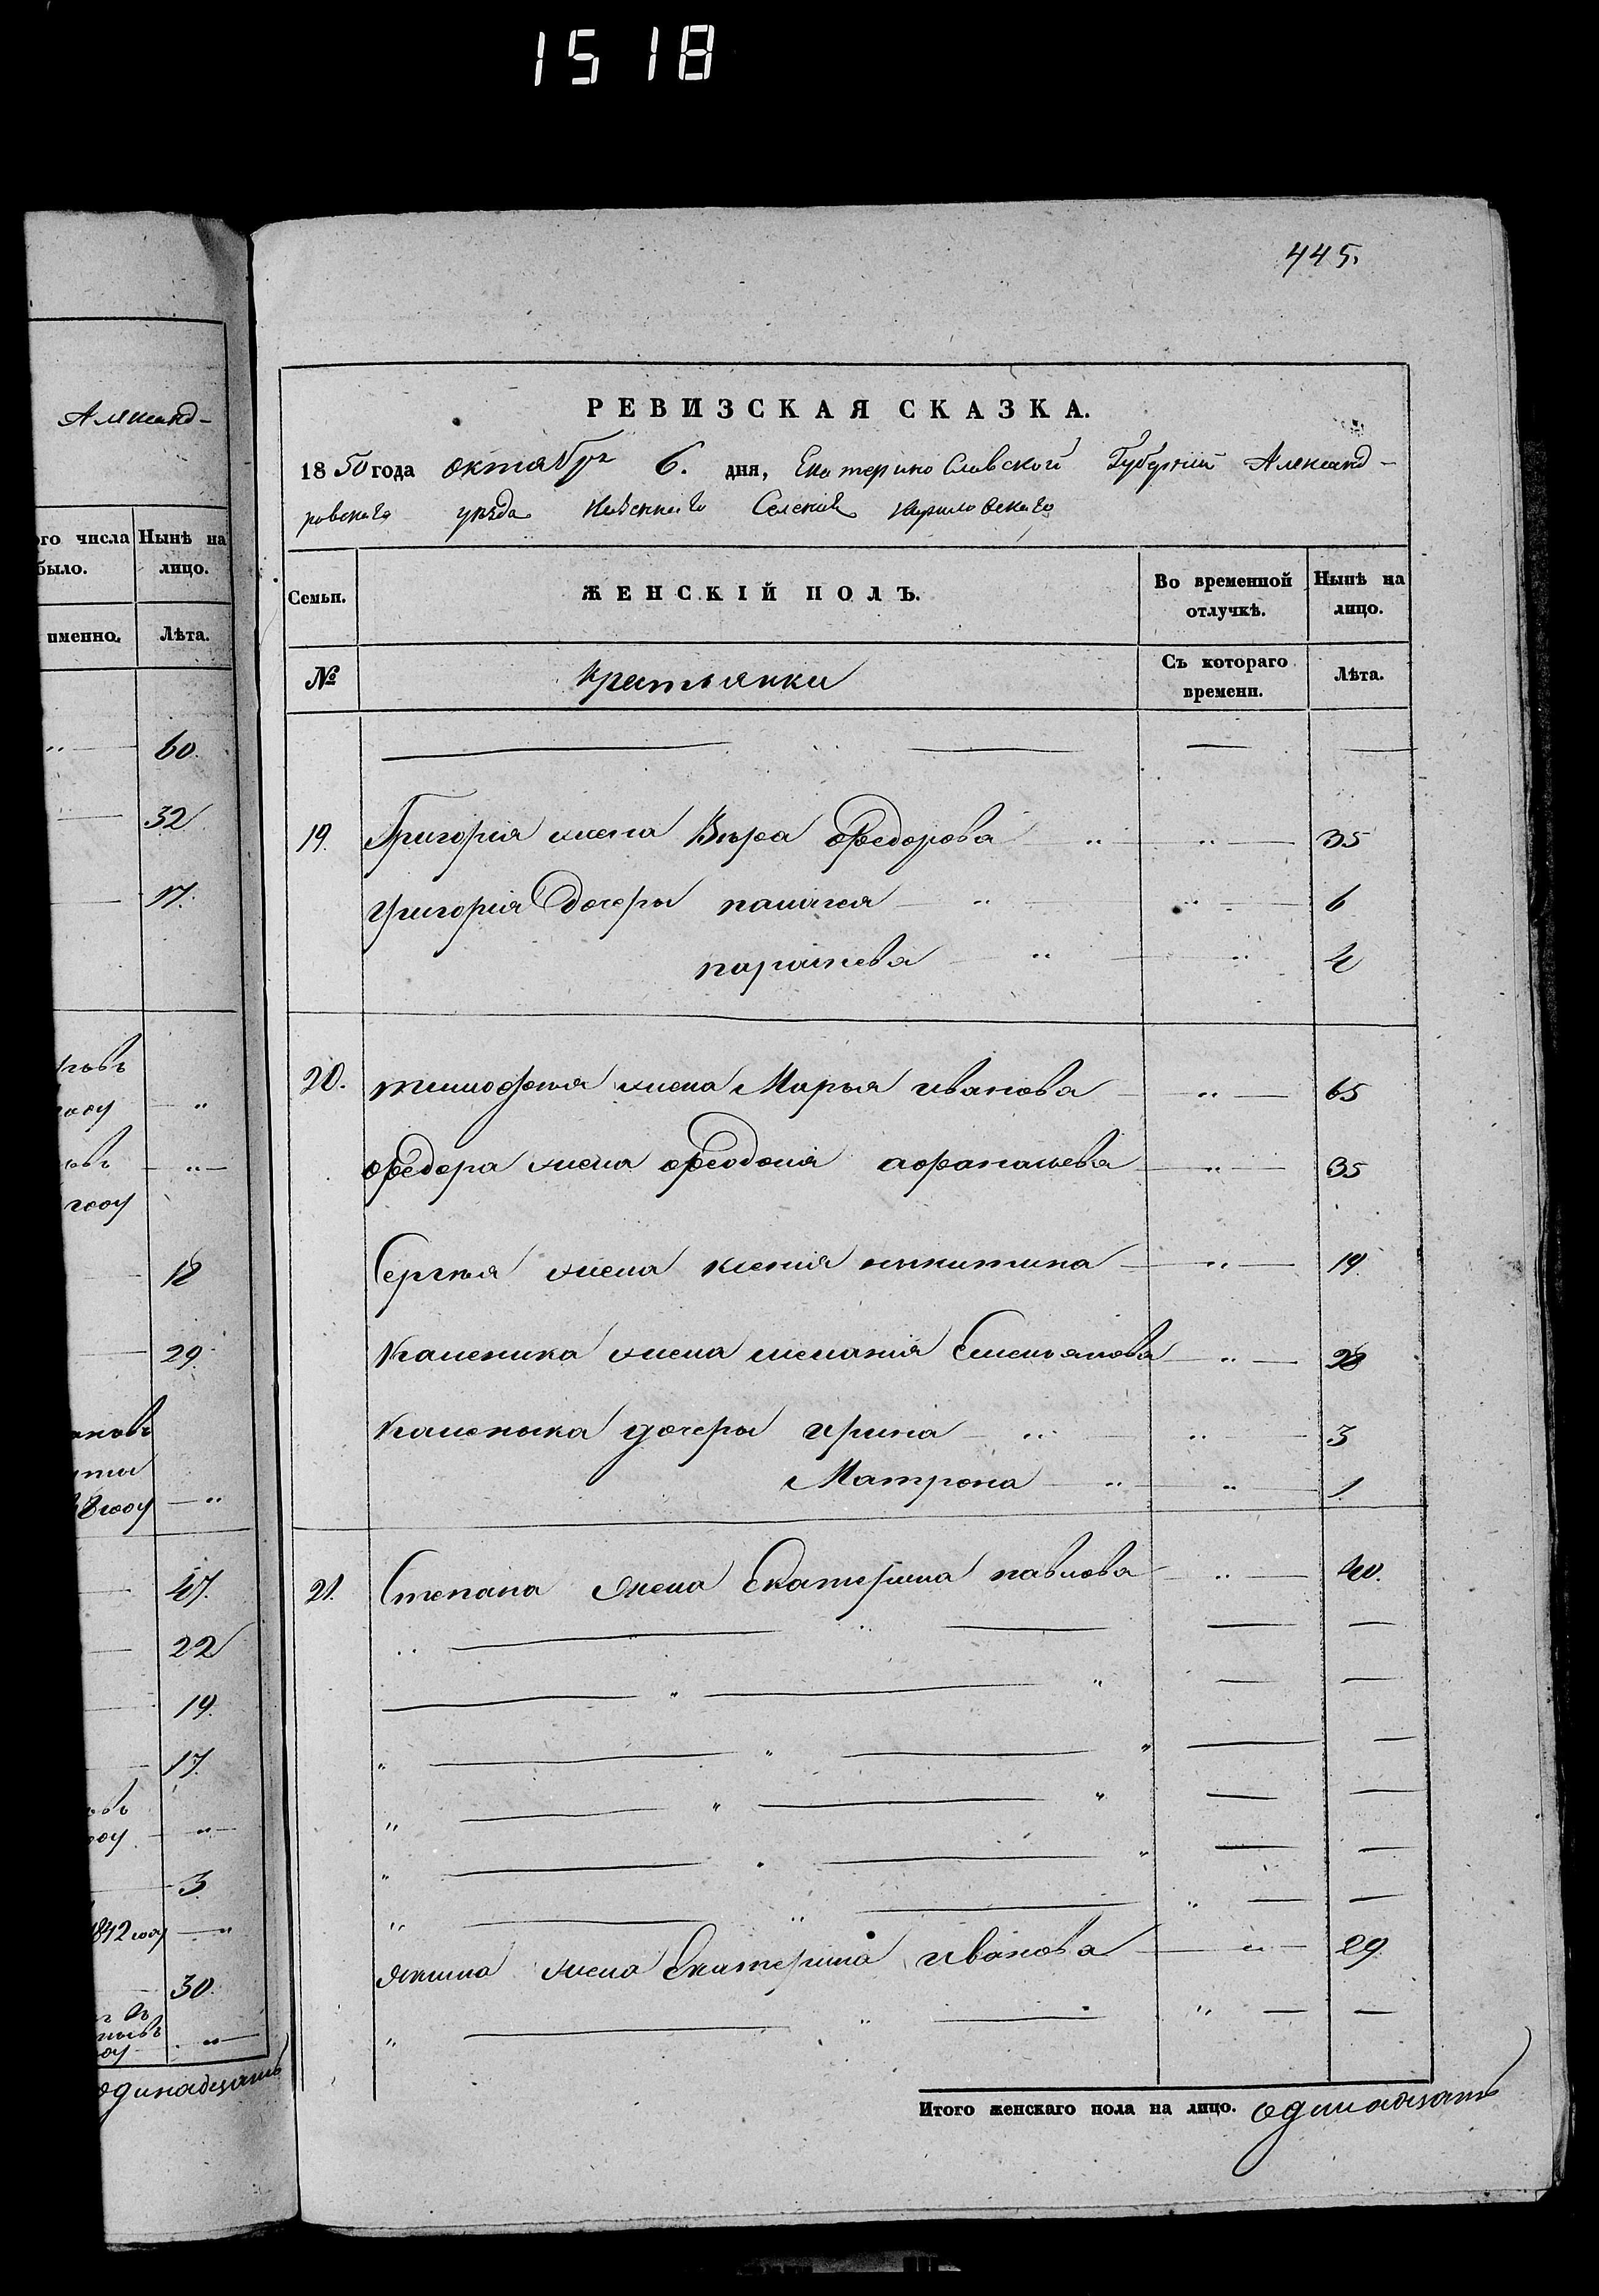 1518
445.
Александ-
ого числа Нынѣ на
было. лицо.
именно. Лѣта.
60.
32
17.
18
29.
47.
22
19.
17.
3
1842 году
30.
одинадцать
РЕВИЗСКАЯ СКАЗКА.
1850 года октября 6. дня, Екатерино Славской Губерніи Александ-
ровскаго уѣзда Казеннаго Селенія Кириловскаго
Семьи. ЖЕНСКІЙ ПОЛЪ. Во временной отлучкѣ. Нынѣ на лицо.
№ крестьянки Съ котораго времени. Лѣта.
19. Григорія жена Вѣра Ѳедорова 35
григорія дочеры палагея 6
парасковя 4
20. тимофѣя жена Марья иванова 65
Ѳедора жена Ѳеодосія афанасьева 35
Сергѣя жена ксенія никитина 19.
Каленика жена меланія Емельянова 28
каленыка дочеры ирина 3
Матрона 1.
21. Степана жена Екатерина павлова 40.
якима жена Екатерина иванова 29.
Итого женскаго пола на лицо. одинадцать